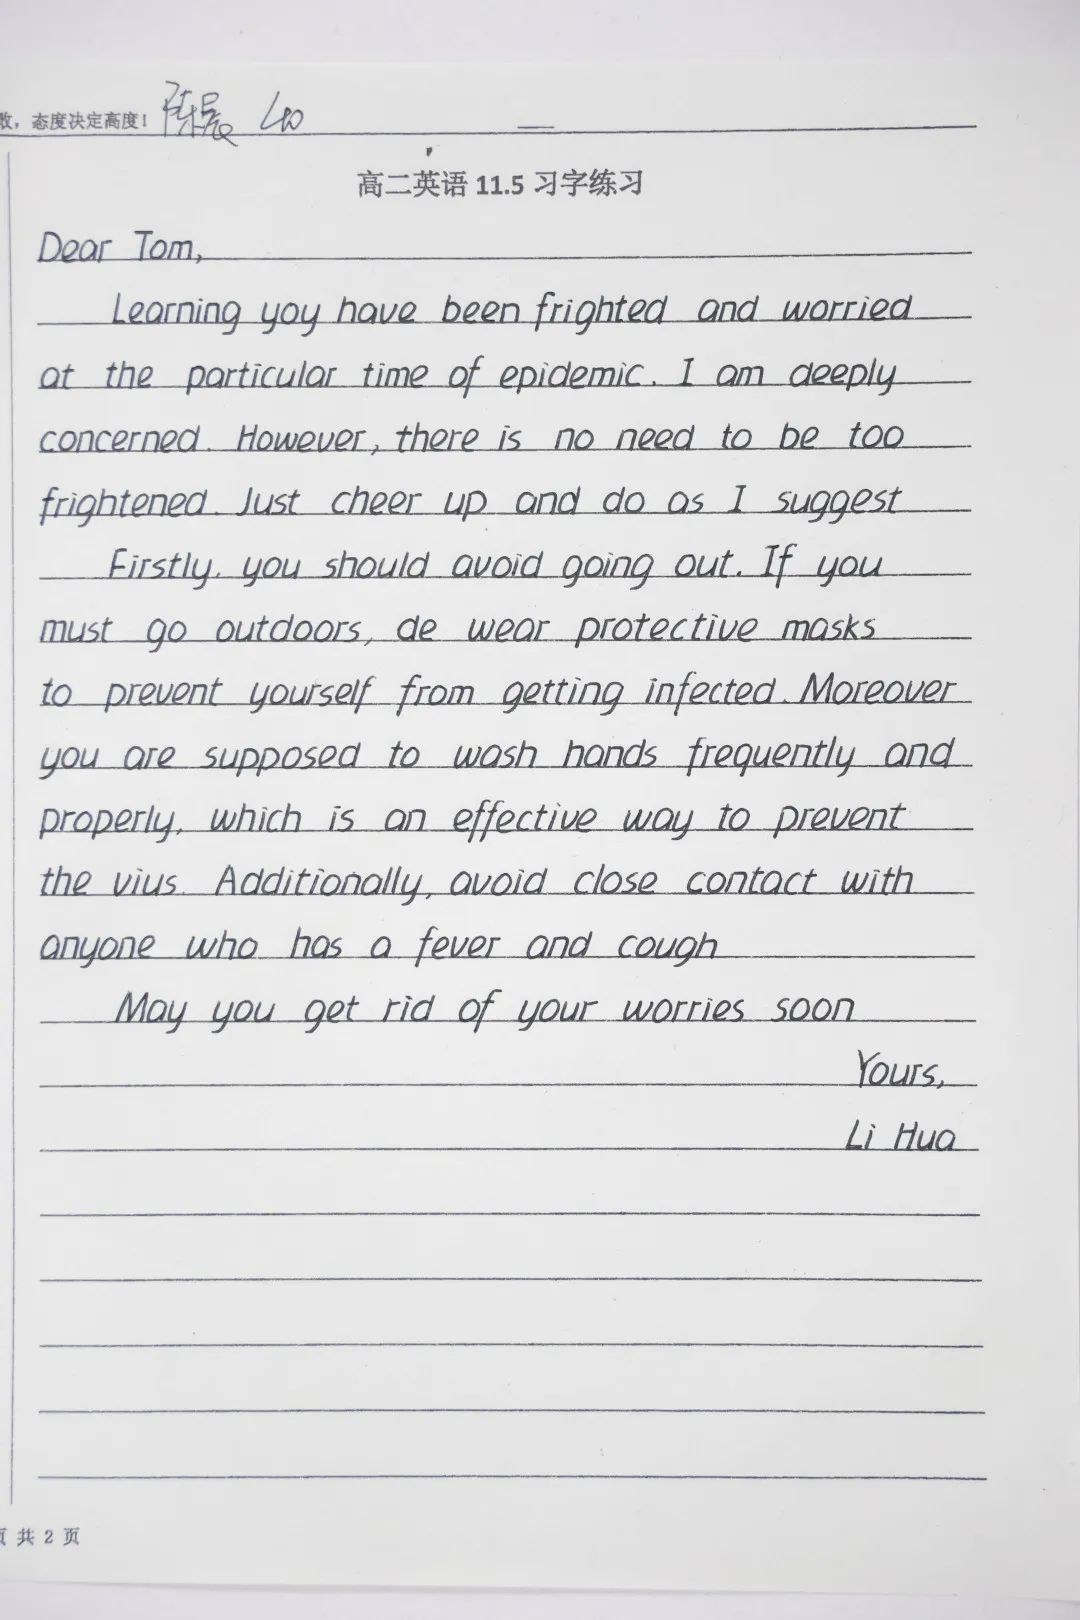 败，态度决定高度！陈晨 40
高二英语 11.5 习字练习
Dear Tom,
Learning yoy have been frighted and worried
at the particular time of epidemic. I am deeply
concerned. However, there is no need to be too
frightened. Just cheer up and do as I suggest
Firstly, you should avoid going out. If you
must go outdoors, de wear protective masks
to prevent yourself from getting infected. Moreover
you are supposed to wash hands frequently and
properly, which is an effective way to prevent
the vius. Additionally, avoid close contact with
anyone who has a fever and cough
May you get rid of your worries soon
Yours,
Li Hua
页 共 2 页